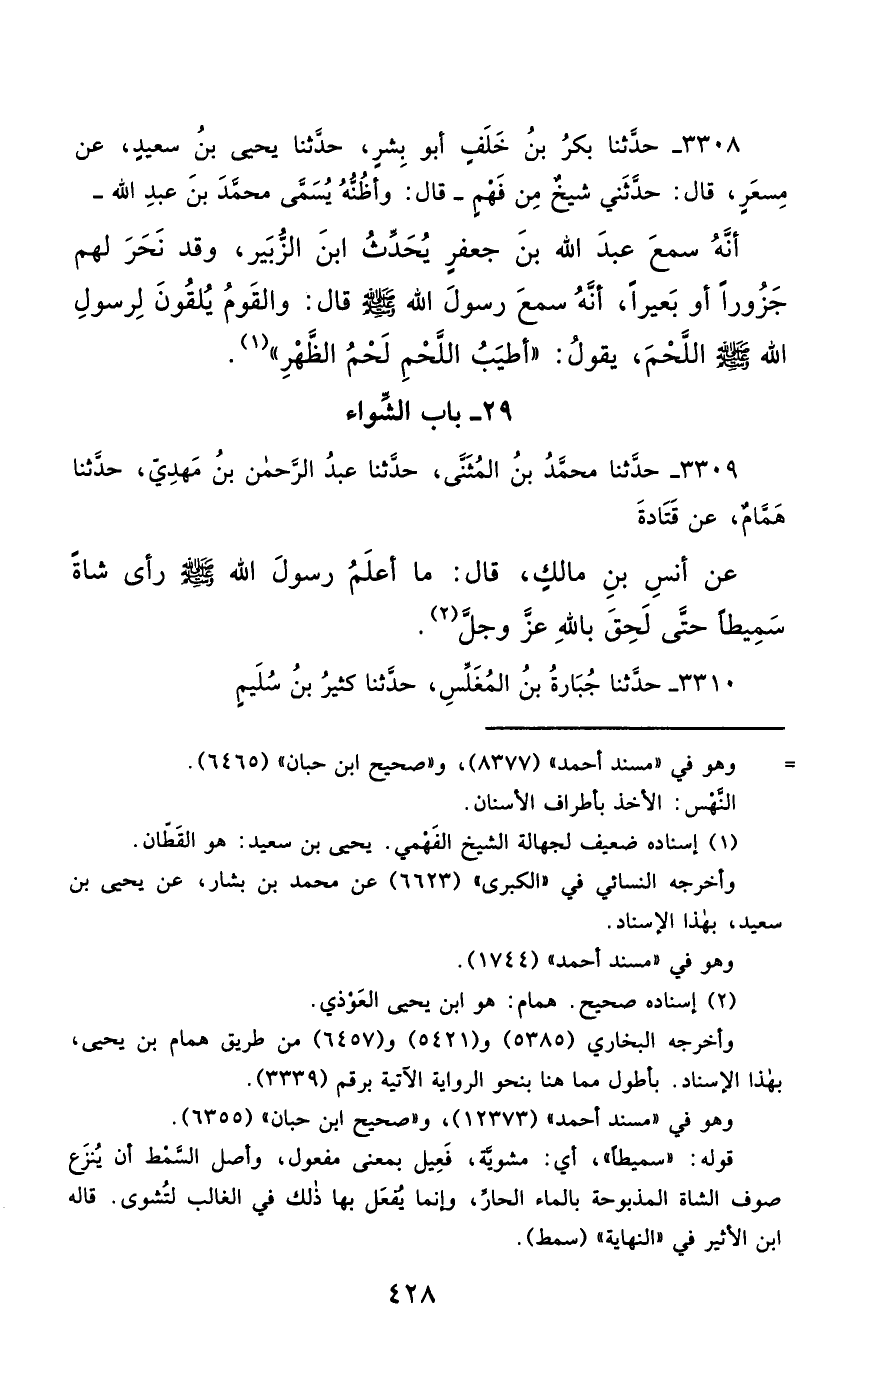 ٣٣٠٨ـ حدَّثنا بكرُ بنُ خَلَفٍ أبو بِشرٍ، حدَّثنا يحيى بنُ سعيدٍ، عن
مِسعَرٍ، قال: حدَّثَني شيخٌ مِن فَهْمٍ ـ قال: وأظُنُّهُ يُسَمَّى محمَّدَ بنَ عبدِ الله ـ
أنَّهُ سمعَ عبدَ الله بنَ جعفرٍ يُحَدِّثُ ابنَ الزُّبَير، وقد نَحَرَ لهم
جَزُوراً أو بَعيراً، أنَّهُ سمعَ رسولَ الله ﷺ قال: والقَومُ يُلقُونَ لِرسولِ
الله ﷺ اللَّحْمَ، يقولُ: «أطيَبُ اللَّحْمِ لَحْمُ الظَّهْرِ»(١).
٢٩ـ باب الشِّواء
٣٣٠٩ـ حدَّثنا محمَّدُ بنُ المُثَنَّى، حدَّثنا عبدُ الرَّحمٰن بنُ مَهدِيّ، حدَّثنا
هَمَّامٌ، عن قَتَادةَ
عن أنسِ بنِ مالكٍ، قال: ما أعلَمُ رسولَ الله ﷺ رأى شاةً
سَمِيطاً حتَّى لَحِقَ باللهِ عزَّ وجلَّ(٢).
٣٣١٠ـ حدَّثنا جُبَارةُ بنُ المُغَلِّسِ، حدَّثنا كثيرُ بنُ سُلَيمٍ
= وهو في «مسند أحمد» (٨٣٧٧)، و«صحيح ابن حبان» (٦٤٦٥).
النَّهْس: الأخذ بأطراف الأسنان.
(١) إسناده ضعيف لجهالة الشيخ الفَهْمي. يحيى بن سعيد: هو القَطّان.
وأخرجه النسائي في «الكبرى» (٦٦٢٣) عن محمد بن بشار، عن يحيى بن
سعيد، بهٰذا الإسناد.
وهو في «مسند أحمد» (١٧٤٤).
(٢) إسناده صحيح. همام: هو ابن يحيى العَوْذي.
وأخرجه البخاري (٥٣٨٥) و(٥٤٢١) و(٦٤٥٧) من طريق همام بن يحيى،
بهٰذا الإسناد. بأطول مما هنا بنحو الرواية الآتية برقم (٣٣٣٩).
وهو في «مسند أحمد» (١٢٣٧٣)، و«صحيح ابن حبان» (٦٣٥٥).
قوله: «سميطاً»، أي: مشويَّة، فَعِيل بمعنى مفعول، وأصل السَّمْط أن يُنزَع
صوف الشاة المذبوحة بالماء الحارِّ، وإنما يُفعَل بها ذٰلك في الغالب لتُشوى. قاله
ابن الأثير في «النهاية» (سمط).
٤٢٨